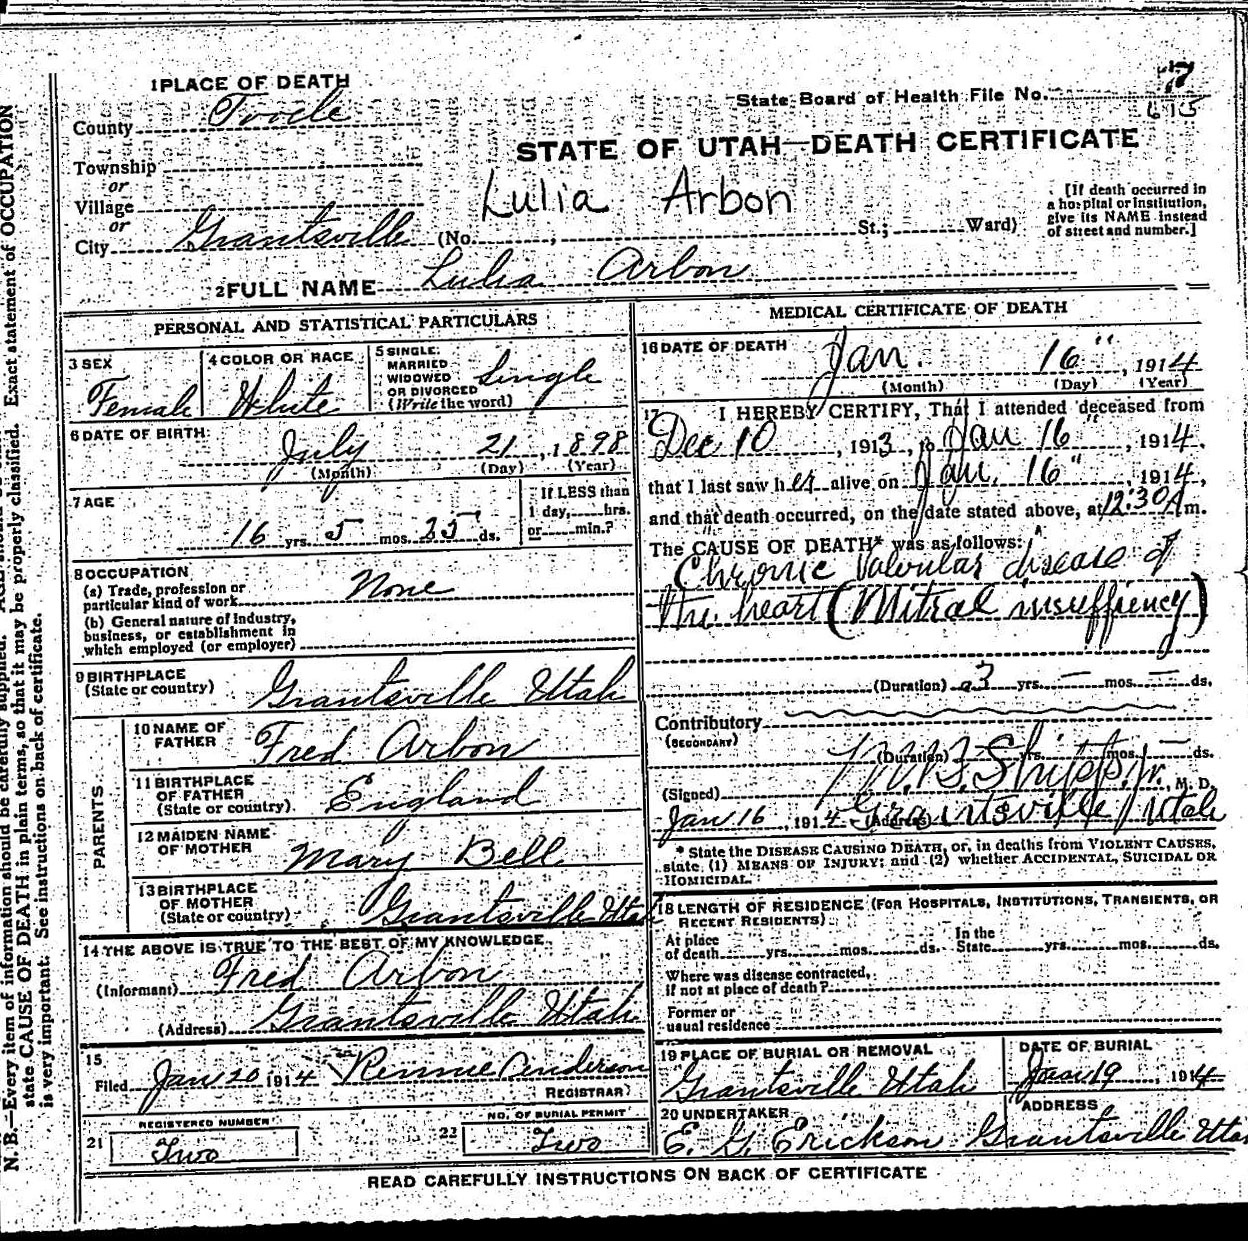 1 PLACE OF DEATH
County Tooele
Township
or
Village
or
City Grantsville (No. ; St.; Ward)
State Board of Health File No. 7
615
STATE OF UTAH—DEATH CERTIFICATE
Lulia Arbon
[If death occurred in
a hospital or institution,
give its NAME instead
of street and number.]
2 FULL NAME Lulia Arbon
PERSONAL AND STATISTICAL PARTICULARS
3 SEX
Female
4 COLOR OR RACE
White
5 SINGLE
MARRIED
WIDOWED
OR DIVORCED
(Write the word)
Single
6 DATE OF BIRTH
July 21, 1898
(Month) (Day) (Year)
7 AGE
16 yrs. 5 mos. 25 ds.
If LESS than
1 day, hrs.
or min.?
8 OCCUPATION
(a) Trade, profession or
particular kind of work None
(b) General nature of industry,
business, or establishment in
which employed (or employer)
9 BIRTHPLACE
(State or country) Grantsville Utah
PARENTS
10 NAME OF
FATHER Fred Arbon
11 BIRTHPLACE
OF FATHER
(State or country) England
12 MAIDEN NAME
OF MOTHER Mary Bell
13 BIRTHPLACE
OF MOTHER
(State or country) Grantsville Utah
14 THE ABOVE IS TRUE TO THE BEST OF MY KNOWLEDGE
(Informant) Fred Arbon
(Address) Grantsville Utah
15
Filed Jan 20 1914 Rennie Anderson
REGISTRAR
REGISTERED NUMBER
21 Two
NO. OF BURIAL PERMIT
22 Two
MEDICAL CERTIFICATE OF DEATH
16 DATE OF DEATH
Jan. 16", 1914
(Month) (Day) (Year)
17 I HEREBY CERTIFY, That I attended deceased from
Dec 10, 1913, to Jan 16", 1914,
that I last saw her alive on Jan. 16", 1914,
and that death occurred, on the date stated above, at 12:30 A m.
The CAUSE OF DEATH* was as follows:
Chronic Valvular disease of
the heart (Mitral insuffiency)
(Duration) 3 yrs. — mos. — ds.
Contributory
(SECONDARY)
(Duration) yrs. mos. — ds.
(Signed) Shipp Jr., M. D.
Jan 16, 1914 (Address) Grantsville Utah
* State the DISEASE CAUSING DEATH, or, in deaths from VIOLENT CAUSES,
state (1) MEANS OF INJURY; and (2) whether ACCIDENTAL, SUICIDAL OR
HOMICIDAL.
18 LENGTH OF RESIDENCE (FOR HOSPITALS, INSTITUTIONS, TRANSIENTS, OR
RECENT RESIDENTS)
At place
of death yrs. mos. ds.
In the
State yrs. mos. ds.
Where was disease contracted,
if not at place of death?
Former or
usual residence
19 PLACE OF BURIAL OR REMOVAL
Grantsville Utah
DATE OF BURIAL
Jan 19, 1914
20 UNDERTAKER
E. G. Erickson
ADDRESS
Grantsville Utah
READ CAREFULLY INSTRUCTIONS ON BACK OF CERTIFICATE
N. B.—Every item of information should be carefully supplied. Exact statement of OCCUPATION
state CAUSE OF DEATH in plain terms, so that it may be properly classified.
is very important. See instructions on back of certificate.